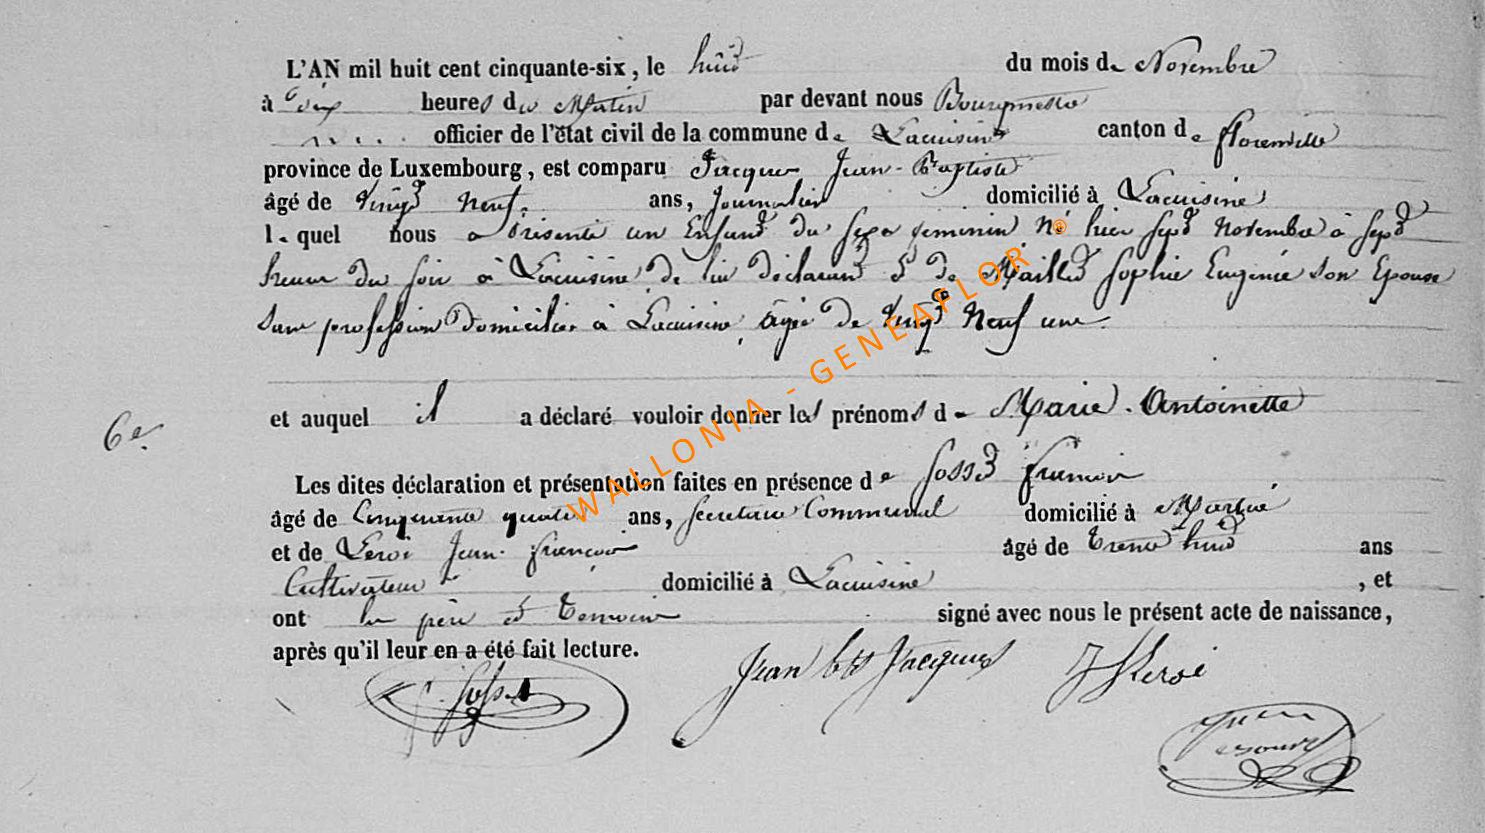 L'AN mil huit cent cinquante-six, le huit du mois de Novembre
à dix heures du Matin par devant nous Bourgmestre
officier de l'état civil de la commune de Lacuisine canton de florenville
province de Luxembourg, est comparu Jacques Jean-Baptiste
âgé de Vingt Neuf ans, Journalier domicilié à Lacuisine
lequel nous a présenté un Enfant du sexe féminin Né hier sept Novembre à sept
heures du soir à Lacuisine, de lui déclarant & de Maillet Sophie Eugénie son Epouse
sans profession domiciliée à Lacuisine, âgée de Vingt Neuf ans.
et auquel il a déclaré vouloir donner les prénoms de Marie-Antoinette
6e.
Les dites déclaration et présentation faites en présence de fosset françois
âgé de Cinquante quatre ans, Secrétaire Communal domicilié à Martué
et de Leroi Jean-françois âgé de Trente huit ans
Cultivateur domicilié à Lacuisine, et
ont les père et Temoins signé avec nous le présent acte de naissance,
après qu'il leur en a été fait lecture.
Jean bte Jacques J f Leroi
WALLONIA - GENEAFLOR ©